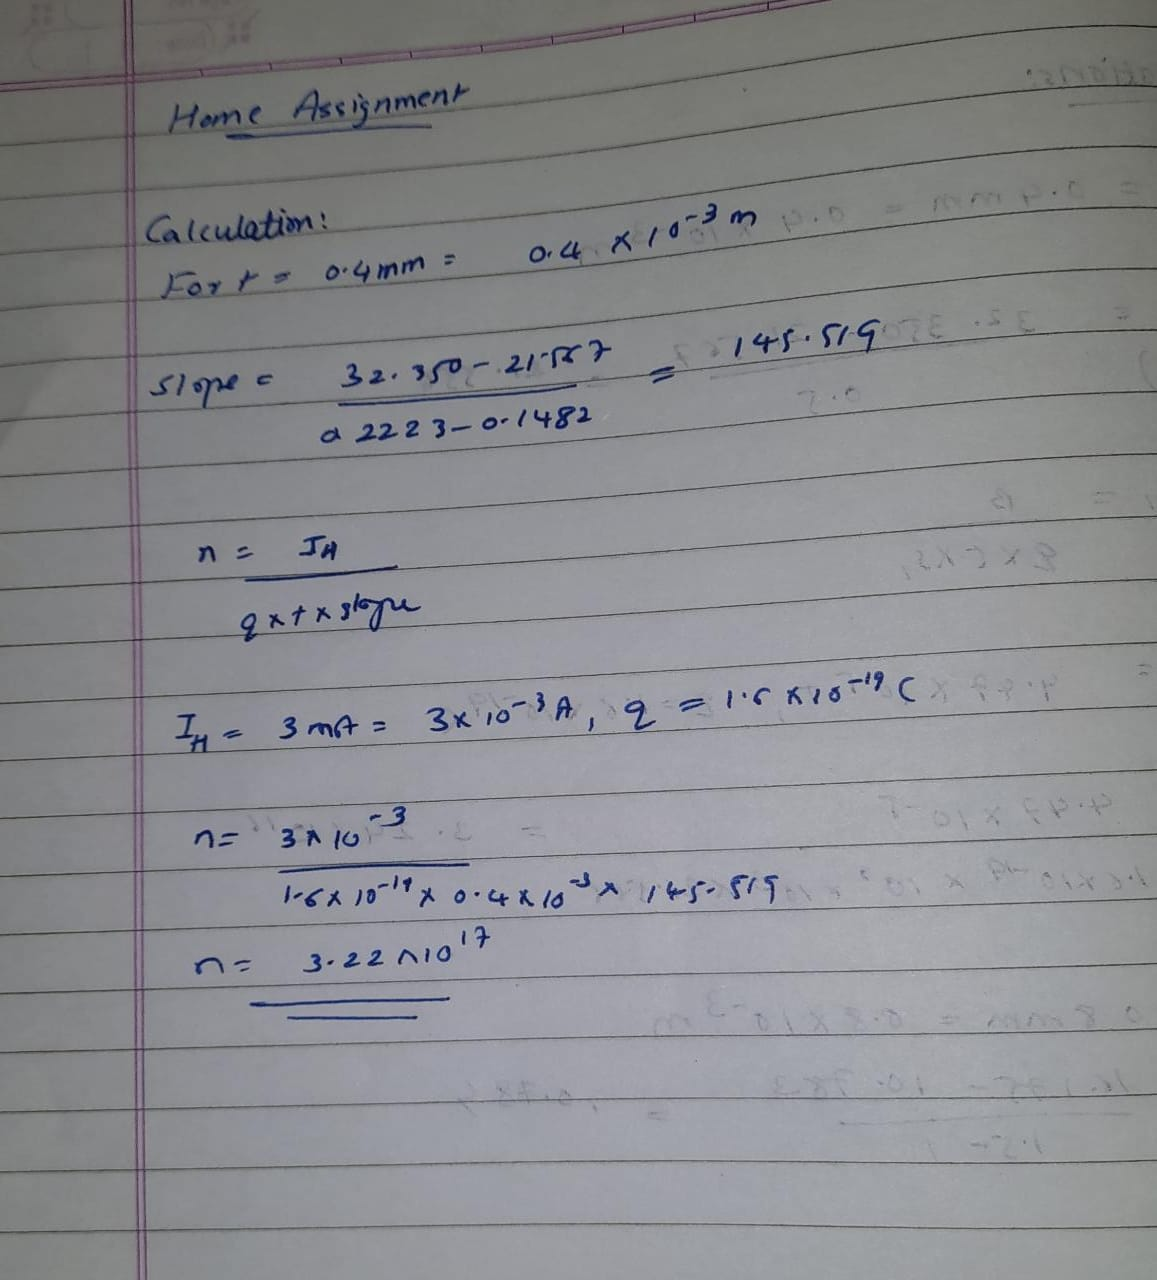 Home Assignment
Calculation:
For t = 0.4mm = 0.4 × 10⁻³ m
Slope = (32.350 - 21.567) / (0.2223 - 0.1482) = 145.519
n = I_H / (q × t × slope)
I_H = 3 mA = 3 × 10⁻³ A, q = 1.6 × 10⁻¹⁹ C
n = (3 × 10⁻³) / (1.6 × 10⁻¹⁹ × 0.4 × 10⁻³ × 145.519)
n = 3.22 × 10¹⁷